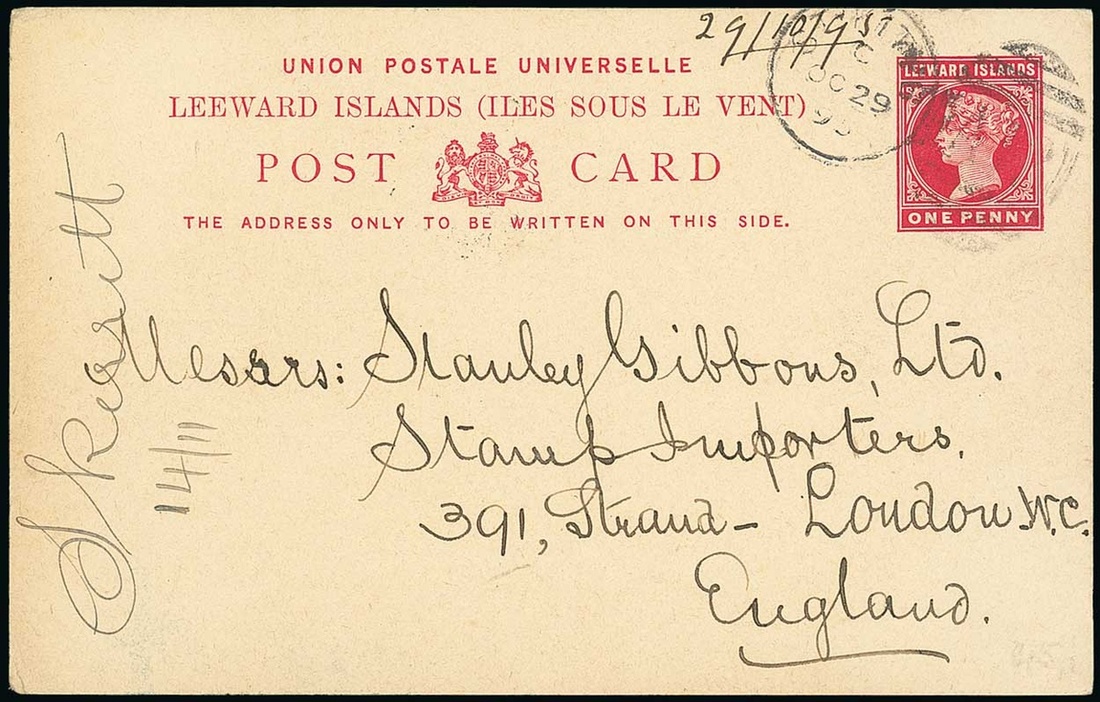 29/10/95
UNION POSTALE UNIVERSELLE
LEEWARD ISLANDS (ILES SOUS LE VENT)
POST CARD
THE ADDRESS ONLY TO BE WRITTEN ON THIS SIDE.
C
OC 29
95
LEEWARD ISLANDS
ONE PENNY
Messrs: Stanley Gibbons, Ltd.
Stamp Importers,
391, Strand - London W.C.
England.
14/11